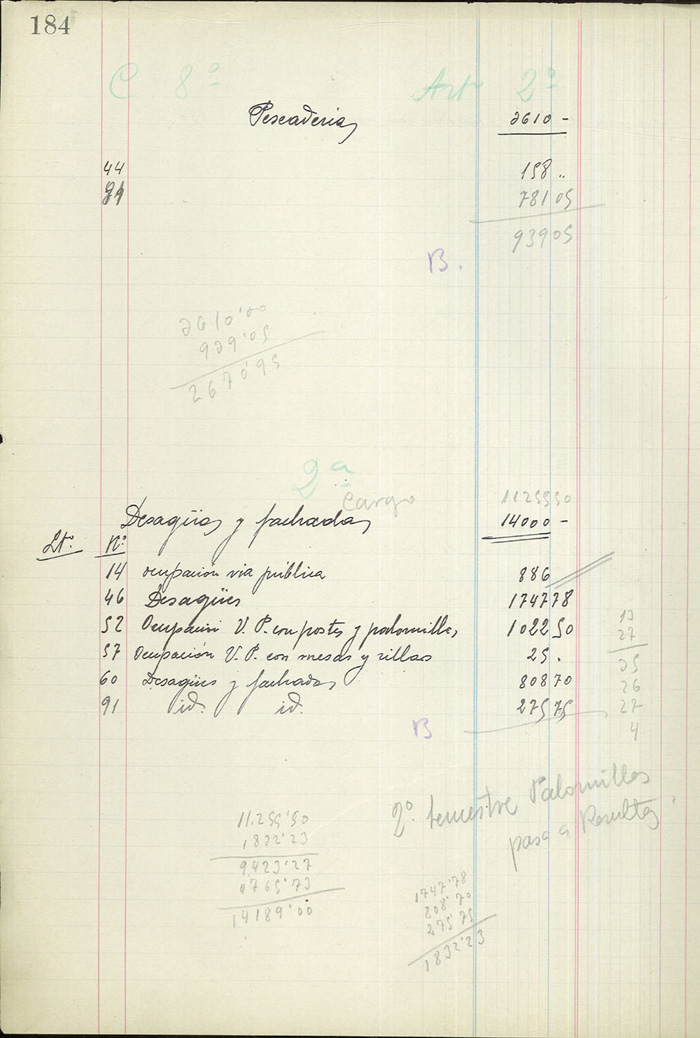 184
C 8º Art 2º
Pescaderias 2610 -
44 158 ..
91 781 05
939 05
B.
2610'00
939'05
2670'95
2ª
cargo 11255 50
Desagües y fachadas 14000 -
Lº. Nº
14 ocupación via pública 886
46 Desagües 1747 78
52 Ocupación V. P. con postes y palomillas 1022 50
57 Ocupación V. P. con mesas y sillas 25 .
60 Desagües y fachadas 808 70
91 id. id. 275 75
B
13
27
25
26
27
4
2º. semestre Palomillas
pasa a Resultas
11.255'50
1832'23
9423'27
4765'73
14189'00
1747'78
808'70
275'75
1832'23